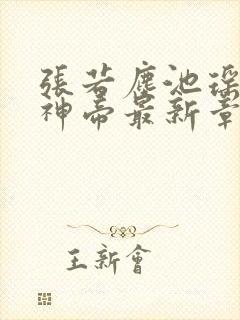 張若塵池瑤
神帝最新章
王新會